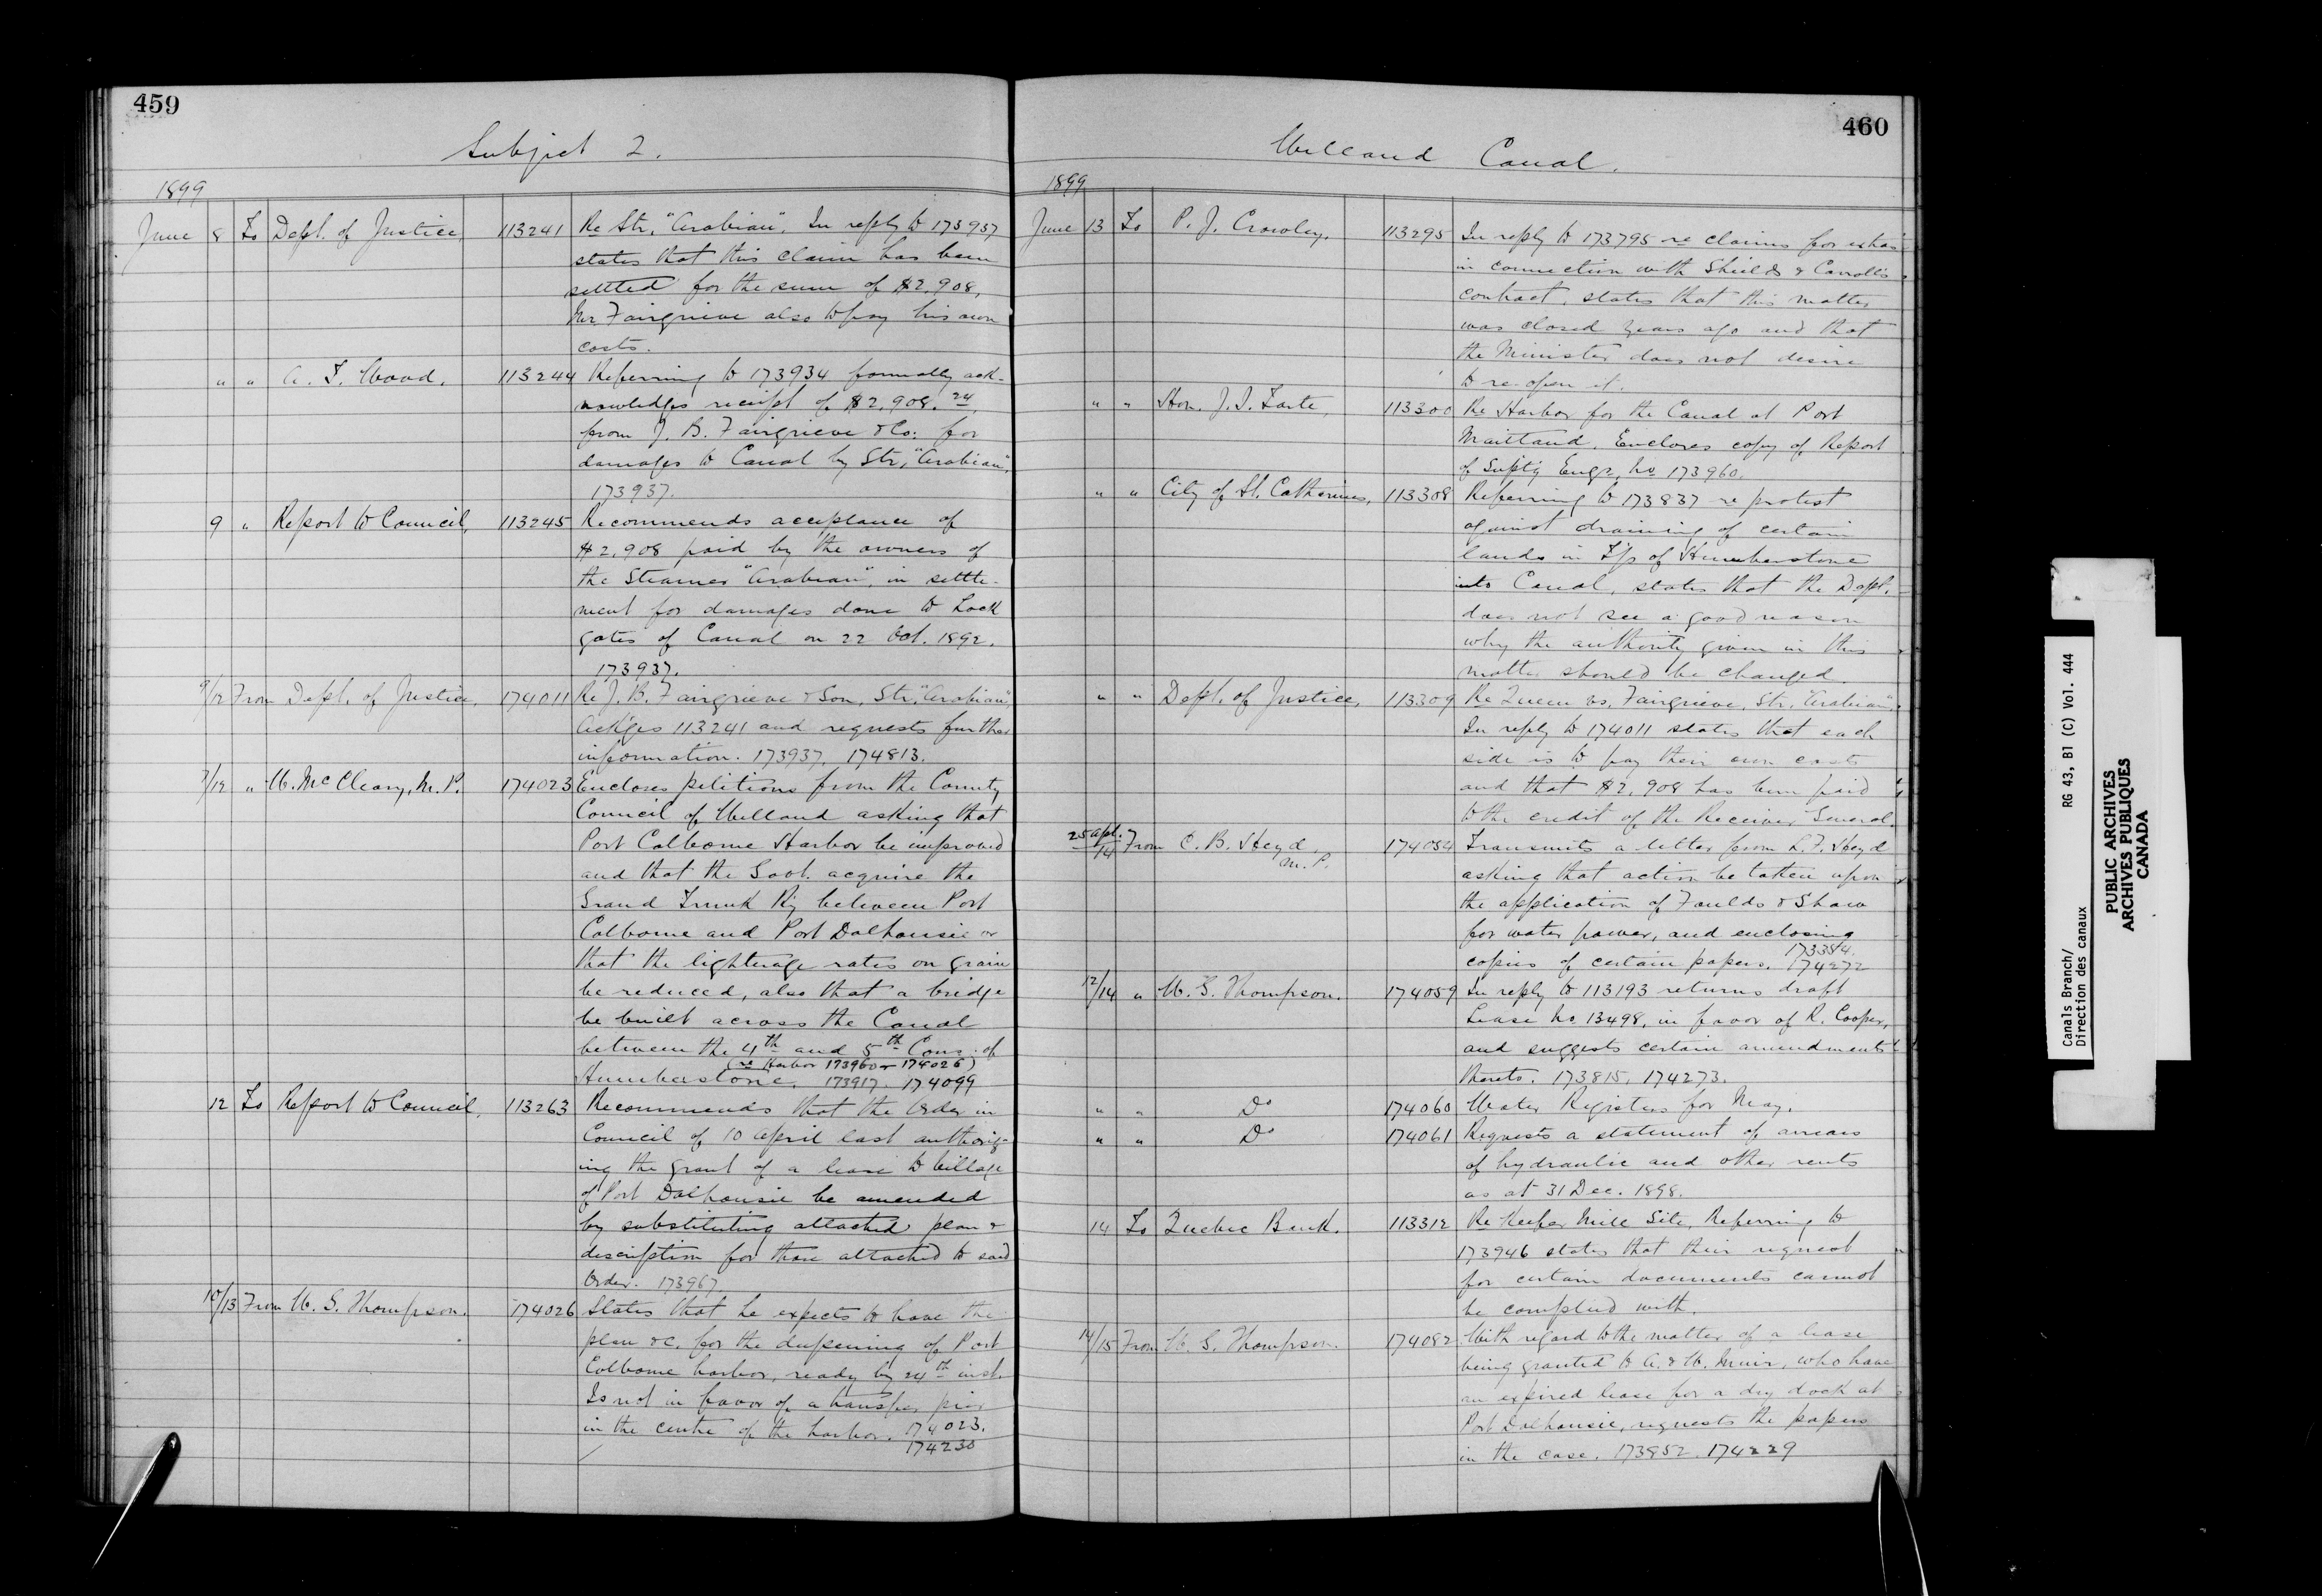 459
Subject 2.
1899
June 8 To Dept. of Justice, 113241 Re Str. "Arabian". In reply to 173937
states that this claim has been
settled for the sum of $2,908,
Mr. Fairgrieve also to pay his own
costs.
" " A. T. Wood. 113244 Referring to 173934 formally ack-
nowledges receipt of $2,908.24
from J. B. Fairgrieve & Co. for
damages to Canal by Str. "Arabian".
173937.
9 " Report to Council, 113245 Recommends acceptance of
$2,908 paid by the owners of
the Steamer "Arabian", in settle-
ment for damages done to Lock
gates of Canal on 22 Oct. 1892.
173937.
9/12 From Dept. of Justice, 174011 Re J. B. Fairgrieve & Son, Str. "Arabian",
Ack'ges 113241 and requests further
information. 173937. 174813.
7/12 " W. McCleary, M. P. 174023 Encloses petitions from the County
Council of Welland asking that
Port Colborne Harbor be improved
and that the Govt. acquire the
Grand Trunk Ry between Port
Colborne and Port Dalhousie or
that the lighterage rates on grain
be reduced, also that a bridge
be built across the Canal
between the 4th and 5th Cons. of
(re Harbor 173960 174026)
Humberstone. 173917. 174099
12 To Report to Council, 113263 Recommends that the Order in
Council of 10 April last authoriz-
ing the grant of a lease to Village
of Port Dalhousie be amended
by substituting attached plan &
description for those attached to said
Order. 173967
10/13 From W. G. Thompson. 174026 States that he expects to have the
plan &c. for the deepening of Port
Colborne harbor, ready by 24th inst.
Is not in favor of a transfer pier
in the centre of the harbor. 174023.
174230
460
Welland Canal.
1899
June 13 To P. J. Crowley, 113295 In reply to 173795 re claims for extras
in connection with Shields & Carroll's
contract, states that this matter
was closed years ago and that
the Minister does not desire
to re-open it.
" " Hon. J. I. Tarte, 113300 Re Harbor for the Canal at Port
Maitland. Encloses copy of Report
of Suptg Engr. No 173960.
" " City of St. Catherines, 113308 Referring to 173837 re protest
against draining of certain
lands in Tp of Humberstone
into Canal, states that the Dept.
does not see a good reason
why the authority given in this
matter should be changed.
" " Dept. of Justice, 113309 Re Queen vs. Fairgrieve, Str. "Arabian".
In reply to 174011 states that each
side is to pay their own costs
and that $2,908 has been paid
to the credit of the Receiver General.
25 Apl./14 From C. B. Heyd, M. P. 174054 Transmits a letter from L. F. Heyd
asking that action be taken upon
the application of Faulds & Shaw
for water power, and enclosing
copies of certain papers. 173384.
174272
12/14 " W. G. Thompson. 174059 In reply to 113193 returns draft
Lease No. 13498, in favor of R. Cooper,
and suggests certain amendments
thereto. 173815, 174273.
" " Do 174060 Water Registers for May.
" " Do 174061 Requests a statement of arrears
of hydraulic and other rents
as at 31 Dec. 1898.
14 To Quebec Bank. 113312 Re Keefer Mill Site, Referring to
173946 states that their request
for certain documents cannot
be complied with.
14/15 From W. G. Thompson. 174082 With regard to the matter of a lease
being granted to A. & W. Muir, who have
an expired lease for a dry dock at
Port Dalhousie, requests the papers
in the case. 173852. 174229
Canals Branch/ RG 43, B1 (C) Vol. 444
Direction des canaux
PUBLIC ARCHIVES
ARCHIVES PUBLIQUES
CANADA